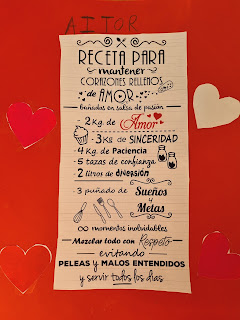 AITOR
RECETA PARA
mantener
CORAZONES RELLENOS
de AMOR
bañados en salsa de pasión
- 2 Kg de Amor
- 3 KG de SINCERIDAD
- 4 Kg. de Paciencia
- 5 tazas de confianza
- 2 litros de diversión
- 3 puñado de Sueños
y
Metas
∞ momentos inolvidables
Mezclar todo con Respeto
evitando
PELEAS y MALOS ENTENDIDOS
y servir todos los días